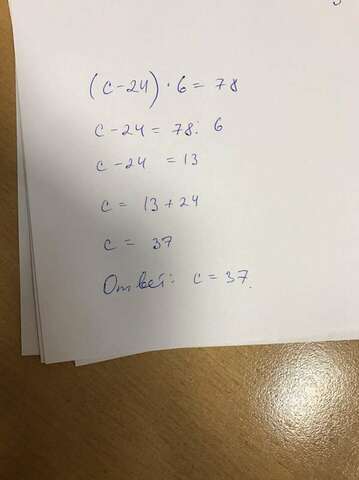 (c-24)·6=78
c-24=78:6
c-24=13
c=13+24
c=37
Ответ: c=37.